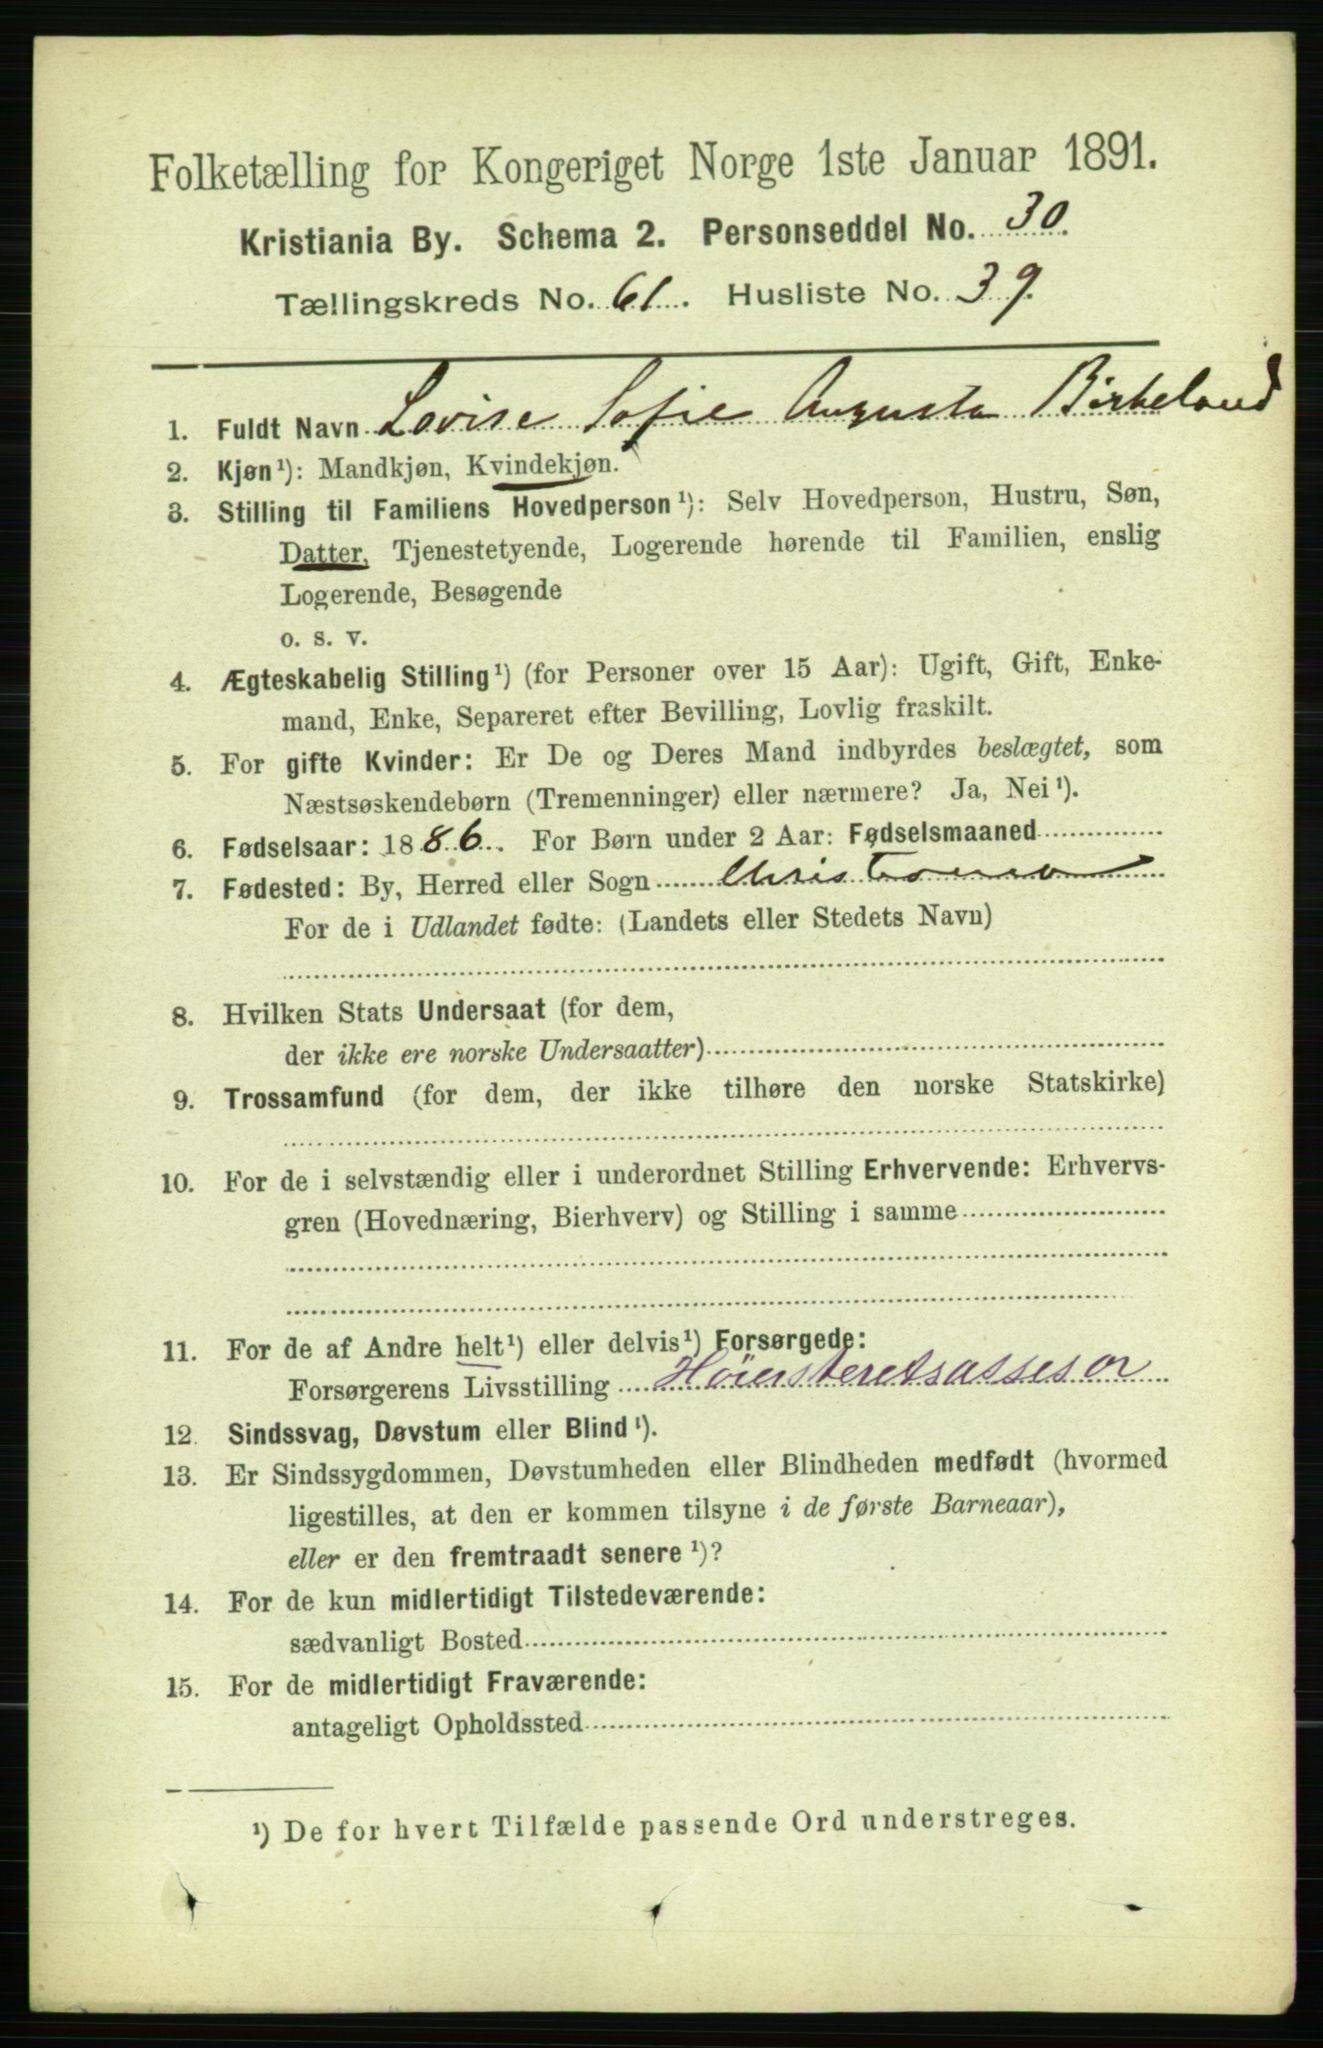 Folketælling for Kongeriget Norge 1ste Januar 1891.
Kristiania By. Schema 2. Personseddel No. 30.
Tællingskreds No. 61. Husliste No. 39.
1. Fuldt Navn Lovise Sofie Augusta Birkeland
2. Kjøn¹): Mandkjøn, Kvindekjøn.
3. Stilling til Familiens Hovedperson¹): Selv Hovedperson, Hustru, Søn,
Datter, Tjenestetyende, Logerende hørende til Familien, enslig
Logerende, Besøgende
o. s. v.
4. Ægteskabelig Stilling¹) (for Personer over 15 Aar): Ugift, Gift, Enke-
mand, Enke, Separeret efter Bevilling, Lovlig fraskilt.
5. For gifte Kvinder: Er De og Deres Mand indbyrdes beslægtet, som
Næstsøskendebørn (Tremenninger) eller nærmere? Ja, Nei¹).
6. Fødselsaar: 1886. For Børn under 2 Aar: Fødselsmaaned
7. Fødested: By, Herred eller Sogn Christiania
For de i Udlandet fødte: (Landets eller Stedets Navn)
8. Hvilken Stats Undersaat (for dem,
der ikke ere norske Undersaatter)
9. Trossamfund (for dem, der ikke tilhøre den norske Statskirke)
10. For de i selvstændig eller i underordnet Stilling Erhvervende: Erhvervs-
gren (Hovednæring, Bierhverv) og Stilling i samme
11. For de af Andre helt¹) eller delvis¹) Forsørgede:
Forsørgerens Livsstilling Høiesteretsassessor
12. Sindssvag, Døvstum eller Blind¹).
13. Er Sindssygdommen, Døvstumheden eller Blindheden medfødt (hvormed
ligestilles, at den er kommen tilsyne i de første Barneaar),
eller er den fremtraadt senere¹)?
14. For de kun midlertidigt Tilstedeværende:
sædvanligt Bosted
15. For de midlertidigt Fraværende:
antageligt Opholdssted
¹) De for hvert Tilfælde passende Ord understreges.